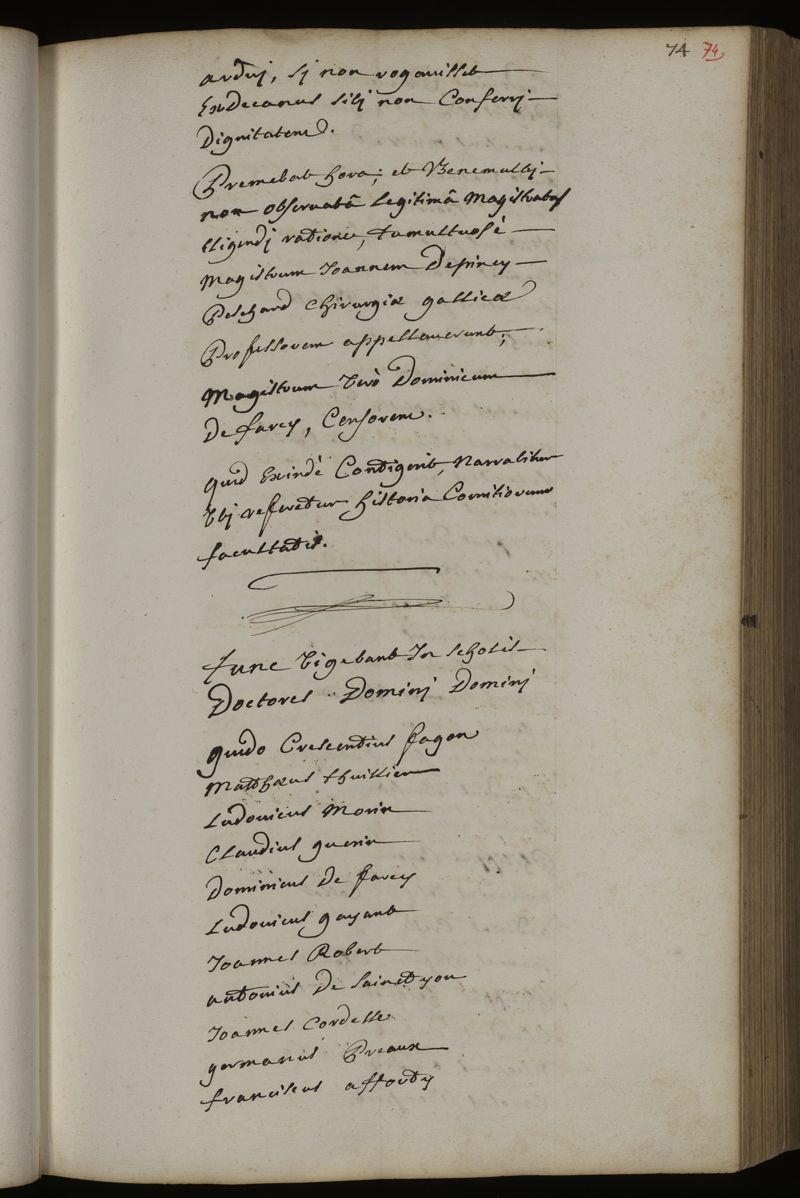 74 74
arduj, sj non rogauisset
Exdecanus sibj non Conferrj
Dignitatem.
Premebat hora; et Benemultj
non obseruatâ legitimâ Magistratus
Eligendj ratione, tumultuosè
Magistrum Joannem Depincy
Peschard Chirurgiæ gallicæ
Professorem appellauerunt;
Magistrum Verò Dominicum
De farcy, Censorem.
quid Exindè Contigerit, Narrabitur
Vbj referetur historia Comitiorum
facultatis.
Tunc Vigebant In scholis
Doctores Dominj Dominj
guido Crescentius fagon
Matthæus thuillier
Ludouicus Morin
Claudius guerin
Dominicus De farcy
Ludouicus gayant
Joannes Robert
antonius De Sainctyon
Joannes Cordelle
germanus Preaux
franciscus afforty